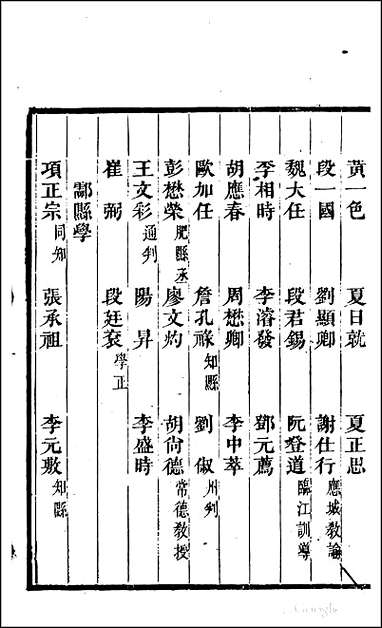 黃一色 夏日就 夏正思
段一國 劉顯卿 謝仕行應城教諭
魏大任 段君錫 阮登道臨江訓導
李相時 李濬發 鄧元薦
胡應春 周懋卿 李中萃
歐加任 詹孔祿知縣 劉俶州判
彭懋榮肥縣丞 廖文灼 胡尚德常德教授
王文彩通判 陽昇 李盛時
崔弼 段廷袞學正
酃縣學
項正宗同知 張承祖 李元敷知縣